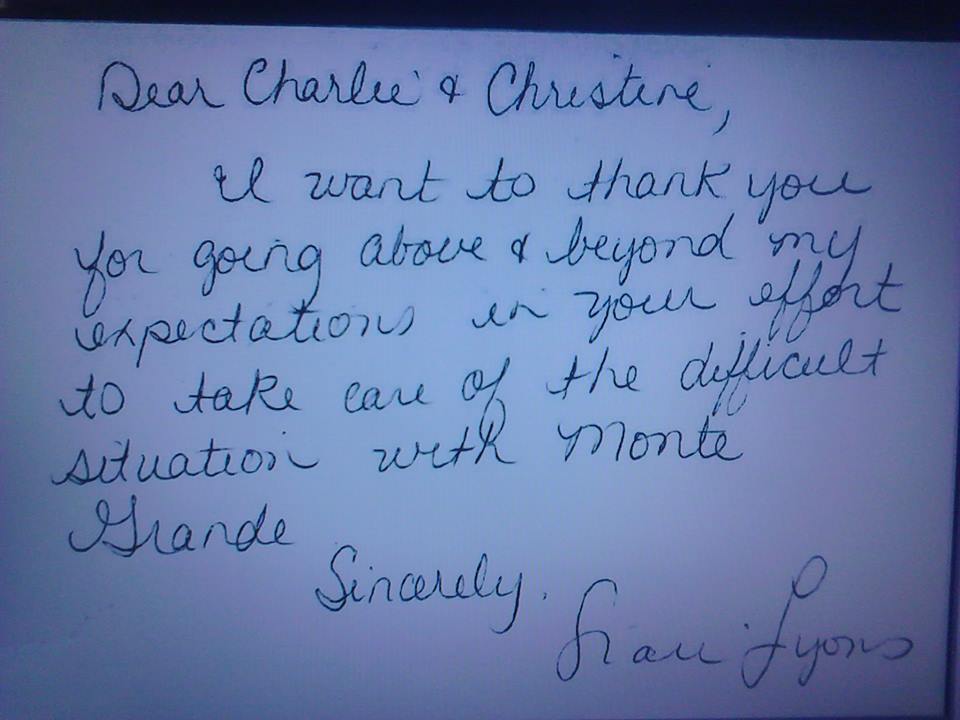 Dear Charlie & Christine,
I want to thank you
for going above & beyond my
expectations in your effort
to take care of the difficult
situation with Monte
Grande
Sincerely.
Lyons